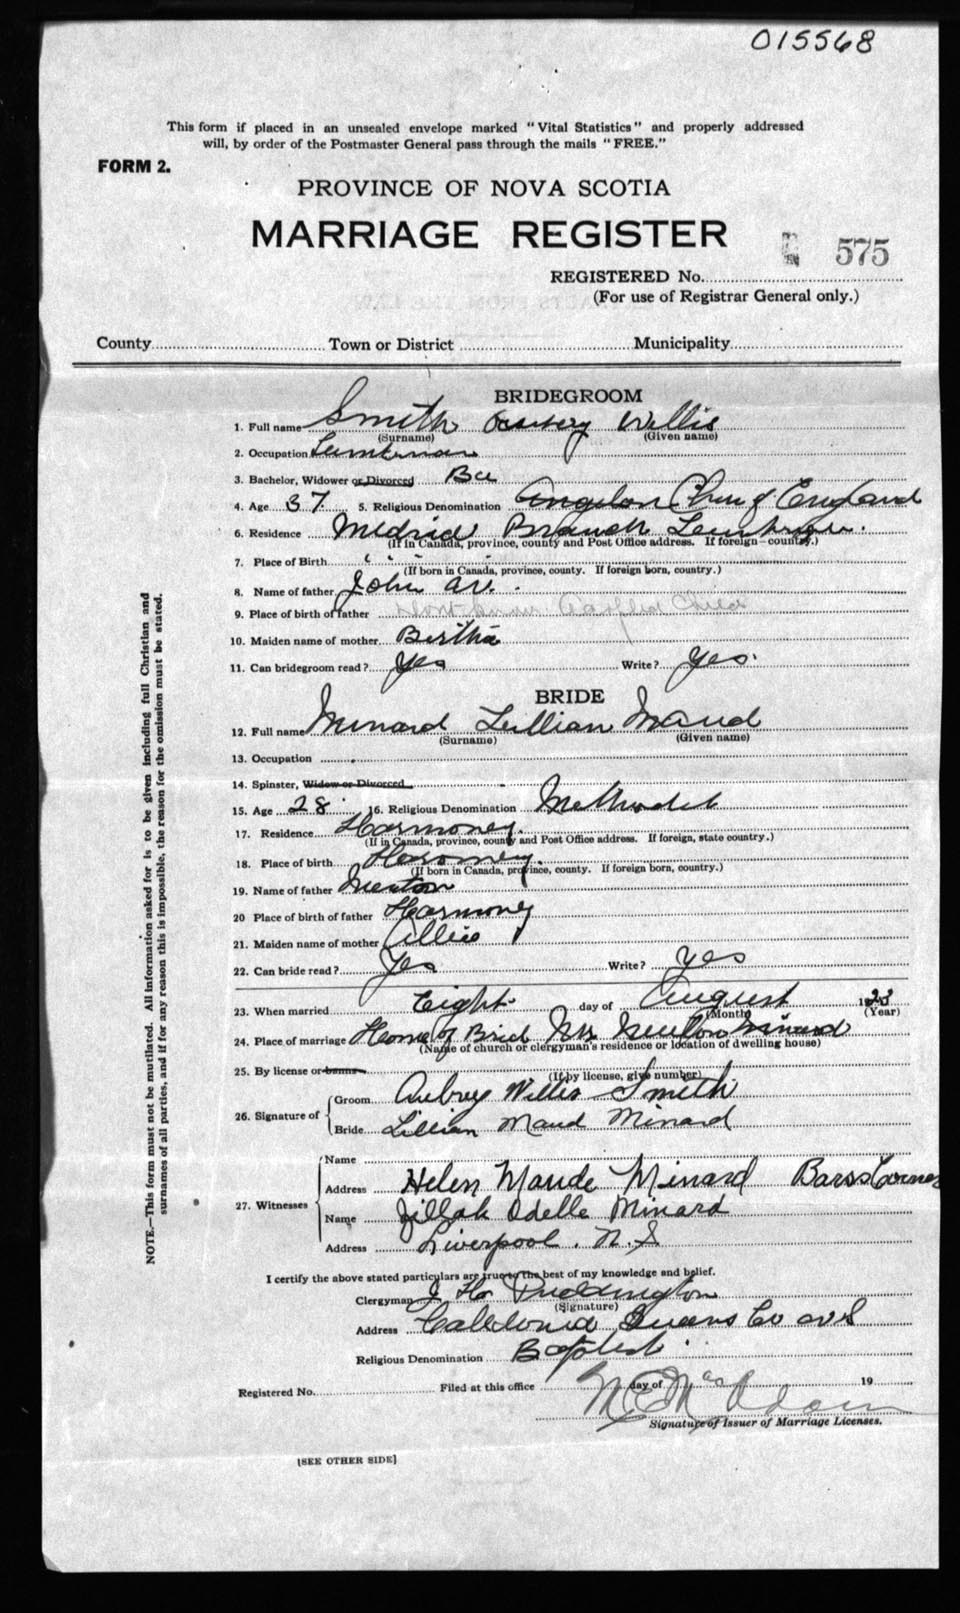 015568
This form if placed in an unsealed envelope marked "Vital Statistics" and properly addressed
will, by order of the Postmaster General pass through the mails "FREE."
FORM 2.
PROVINCE OF NOVA SCOTIA
MARRIAGE REGISTER
575
REGISTERED No.
(For use of Registrar General only.)
County Town or District Municipality
BRIDEGROOM
1. Full name Smith Willis
(Surname) (Given name)
2. Occupation Lumberman
3. Bachelor, Widower or Divorced Ba
4. Age 37 5. Religious Denomination Angelon Chu of England
6. Residence Branch
(If in Canada, province, county and Post Office address. If foreign—country.)
7. Place of Birth
(If born in Canada, province, county. If foreign born, country.)
8. Name of father John
9. Place of birth of father dont know Child
10. Maiden name of mother Bertha
11. Can bridegroom read? Yes Write? Yes.
BRIDE
12. Full name Minard Lillian Maud
(Surname) (Given name)
13. Occupation
14. Spinster, Widow or Divorced
15. Age 28 16. Religious Denomination Methodist
17. Residence Harmoney.
(If in Canada, province, county and Post Office address. If foreign, state country.)
18. Place of birth Haromey.
(If born in Canada, province, county. If foreign born, country.)
19. Name of father
20 Place of birth of father Harmoney
21. Maiden name of mother
22. Can bride read? Yes Write? Yes
23. When married Eight day of August 1923
(Month) (Year)
24. Place of marriage Home of Brid Mrs Minard
(Name of church or clergyman's residence or location of dwelling house)
25. By license or banns
(If by license, give number)
26. Signature of Groom Aubrey Willis Smith
Bride Lillian Maud Minard
27. Witnesses Name
Address Helen Maude Minard Barss Corner
Name Zillah Odella Minard
Address Liverpool. N.S
I certify the above stated particulars are true to the best of my knowledge and belief.
Clergyman J Puddington
(Signature)
Address Caledonia Queens Co
Religious Denomination Baptist
Registered No. Filed at this office day of 19
Signature of Issuer of Marriage Licenses.
[SEE OTHER SIDE]
NOTE.—This form must not be mutilated. All information asked for is to be given including full Christian and
surnames of all parties, and if for any reason this is impossible, the reason for the omission must be stated.